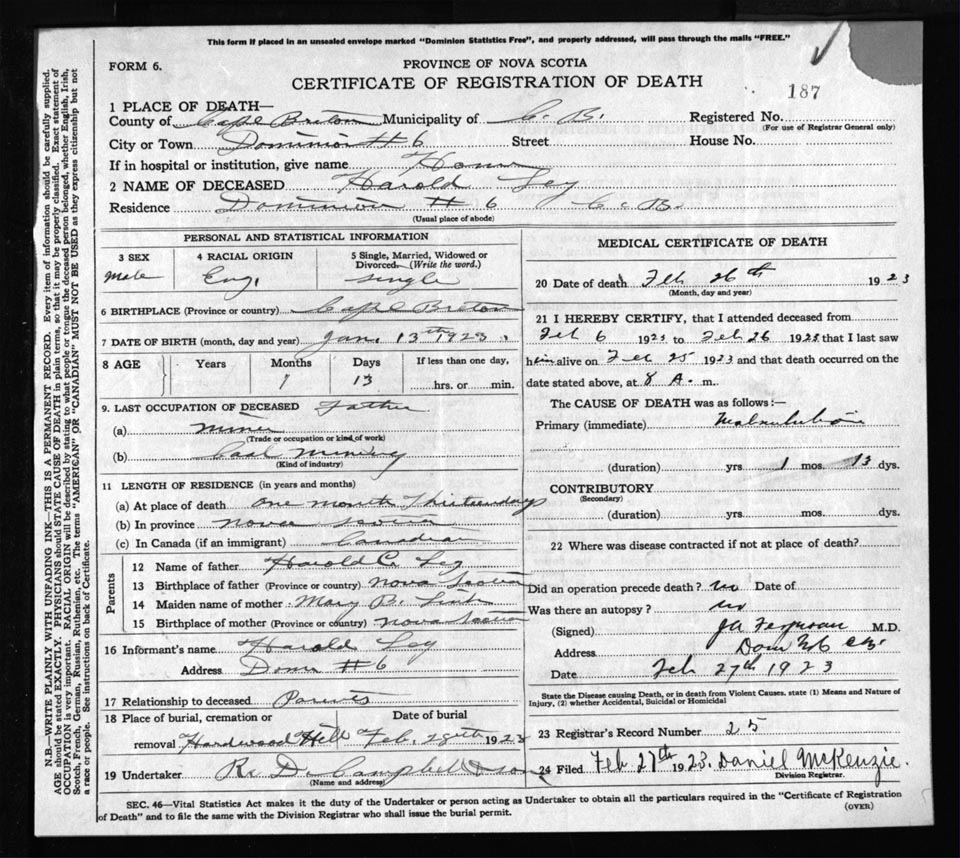 This form if placed in an unsealed envelope marked "Dominion Statistics Free", and properly addressed, will pass through the mails "FREE."
FORM 6.
PROVINCE OF NOVA SCOTIA
CERTIFICATE OF REGISTRATION OF DEATH
187
1 PLACE OF DEATH—
County of Cape Breton Municipality of C. B. Registered No.
(For use of Registrar General only)
City or Town Dominion # 6 Street House No.
If in hospital or institution, give name Home
2 NAME OF DECEASED Harold Ley
Residence Dominion # 6 C. B.
(Usual place of abode)
PERSONAL AND STATISTICAL INFORMATION
3 SEX 4 RACIAL ORIGIN 5 Single, Married, Widowed or Divorced. (Write the word.)
Male Eng. single
6 BIRTHPLACE (Province or country) Cape Breton
7 DATE OF BIRTH (month, day and year) Jan. 13th 1923.
8 AGE Years Months Days If less than one day,
1 13 hrs. or min.
9. LAST OCCUPATION OF DECEASED Father
(a) miner
(Trade or occupation or kind of work)
(b) Coal Mining
(Kind of industry)
11 LENGTH OF RESIDENCE (in years and months)
(a) At place of death one month Thirteen days
(b) In province Nova Scotia
(c) In Canada (if an immigrant) Canadian
Parents
12 Name of father Harold C. Ley
13 Birthplace of father (Province or country) Nova Scotia
14 Maiden name of mother Mary B.
15 Birthplace of mother (Province or country) Nova Scotia
16 Informant's name Harold Ley
Address Dom # 6
17 Relationship to deceased
18 Place of burial, cremation or removal Hardwood Hill Date of burial Feb. 28th 1923
19 Undertaker Campbell & son
(Name and address)
MEDICAL CERTIFICATE OF DEATH
20 Date of death Feb 26th 1923
(Month, day and year)
21 I HEREBY CERTIFY, that I attended deceased from
Feb 6 1923 to Feb 26 1923 that I last saw
him alive on Feb 25 1923 and that death occurred on the
date stated above, at 8 A. m.
The CAUSE OF DEATH was as follows:—
Primary (immediate) Malnutrition
(duration) yrs 1 mos. 13 dys.
CONTRIBUTORY
(Secondary)
(duration) yrs. mos. dys.
22 Where was disease contracted if not at place of death?
Did an operation precede death? no Date of
Was there an autopsy? no
(Signed) JA Ferguson M.D.
Address Dom No 6 CB.
Date Feb 27th 1923
State the Disease causing Death, or in death from Violent Causes, state (1) Means and Nature of
Injury, (2) whether Accidental, Suicidal or Homicidal
23 Registrar's Record Number 25
24 Filed Feb 27th 1923. Daniel McKenzie.
Division Registrar.
SEC. 46—Vital Statistics Act makes it the duty of the Undertaker or person acting as Undertaker to obtain all the particulars required in the "Certificate of Registration
of Death" and to file the same with the Division Registrar who shall issue the burial permit.
(OVER)
N.B.—WRITE PLAINLY WITH UNFADING INK—THIS IS A PERMANENT RECORD. Every item of information should be carefully supplied.
AGE should be stated EXACTLY. PHYSICIANS should STATE CAUSE OF DEATH in plain terms, so that it may be properly classified. Exact statement of
OCCUPATION is very important. RACIAL ORIGIN will be described by stating to what people or tongue the deceased person belonged, whether English, Irish,
Scotch, French, German, Russian, Ruthenian, etc. The terms "AMERICAN" OR "CANADIAN" MUST NOT BE USED as they express citizenship but not
a race or people. See instructions on back of Certificate.